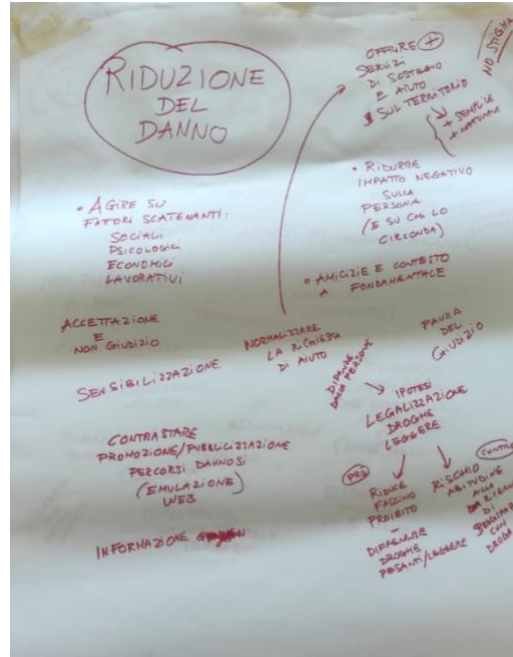 RIDUZIONE
DEL
DANNO
• AGIRE SU
FATTORI SCATENANTI:
SOCIALI
PSICOLOGICI
ECONOMICI
LAVORATIVI
ACCETTAZIONE
E
NON GIUDIZIO
SENSIBILIZZAZIONE
CONTRASTARE
PROMOZIONE/PUBBLICIZZAZIONE
PERCORSI DANNOSI
(EMULAZIONE)
WEB
INFORMAZIONE
NORMALIZZARE
LA RICHIESTA
DI AIUTO
OFFRIRE +
SERVIZI
DI SOSTEGNO
E AIUTO
SUL TERRITORIO
NO STIGMA
+ SEMPLICE
+ NATURALE
• RIDURRE
IMPATTO NEGATIVO
SULLA
PERSONA
(E SU CHI LO
CIRCONDA)
• AMICIZIE E CONTESTO
FONDAMENTALE
PAURA
DEL
GIUDIZIO
DIPENDE
DALLA PERSONA
IPOTESI
LEGALIZZAZIONE
DROGHE
LEGGERE
PRO
RIDURRE
FASCINO
PROIBITO
–
DIFFERENTE
DROGHE
PESANTI/LEGGERE
CONTRO
RISCHIO
ABITUDINE
ALLA
DI
CON
DROGA